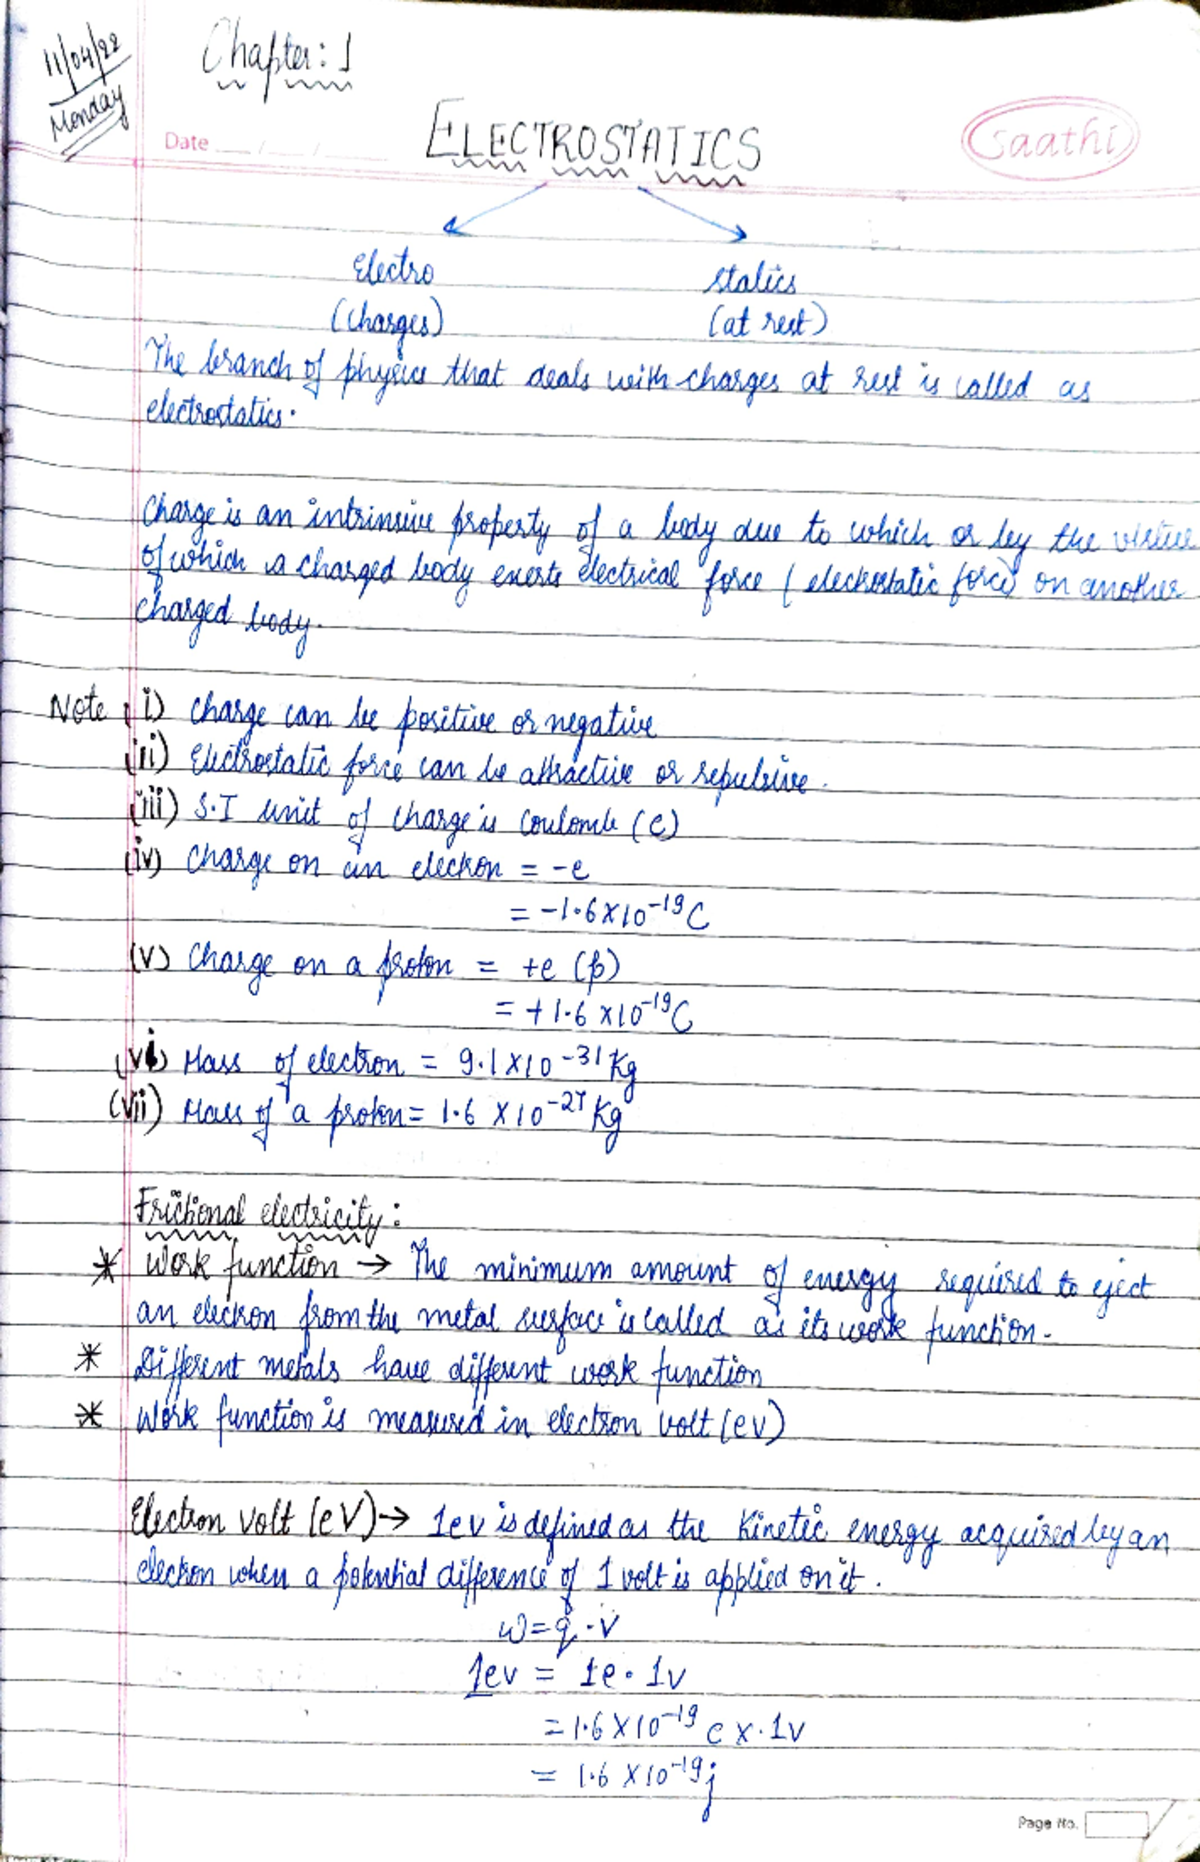 11/04/22
Monday
Chapter: 1
Date __/__/__
ELECTROSTATICS
Saathi
Electro statics
(charges) (at rest)
The branch of physics that deals with charges at rest is called as
electrostatics.
Charge is an intrinsive property of a body due to which or by the virtue
of which a charged body exerts electrical force (electrostatic force) on another
charged body.
Note (i) Charge can be positive or negative
(ii) Electrostatic force can be attractive or repulsive.
(iii) S.I unit of charge is coulomb (c)
(iv) Charge on an electron = -e
= -1.6×10⁻¹⁹C
(v) Charge on a proton = +e (p)
= +1.6×10⁻¹⁹C
(vi) Mass of electron = 9.1×10⁻³¹Kg
(vii) Mass of a proton = 1.6 ×10⁻²⁷Kg
Frictional electricity:
* Work function → The minimum amount of energy required to eject
an electron from the metal surface is called as its work function.
* Different metals have different work function
* Work function is measured in electron volt (ev)
Electron volt (eV) → 1ev is defined as the Kinetic energy acquired by an
electron when a potential difference of 1 volt is applied on it.
w=q.v
1ev = 1e.1v
=1.6×10⁻¹⁹ c ×.1v
= 1.6×10⁻¹⁹j
Page No.